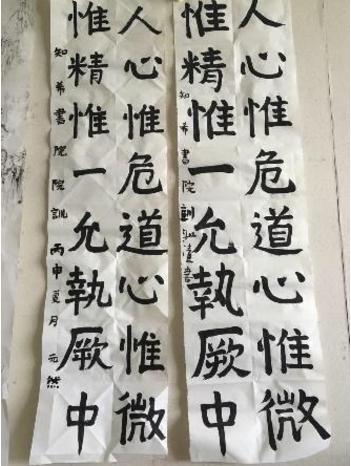 人心惟危道心惟微
惟精惟一允執厥中
知希書院訓
人心惟危道心惟微
惟精惟一允執厥中
知希書院院訓 丙申夏月元然